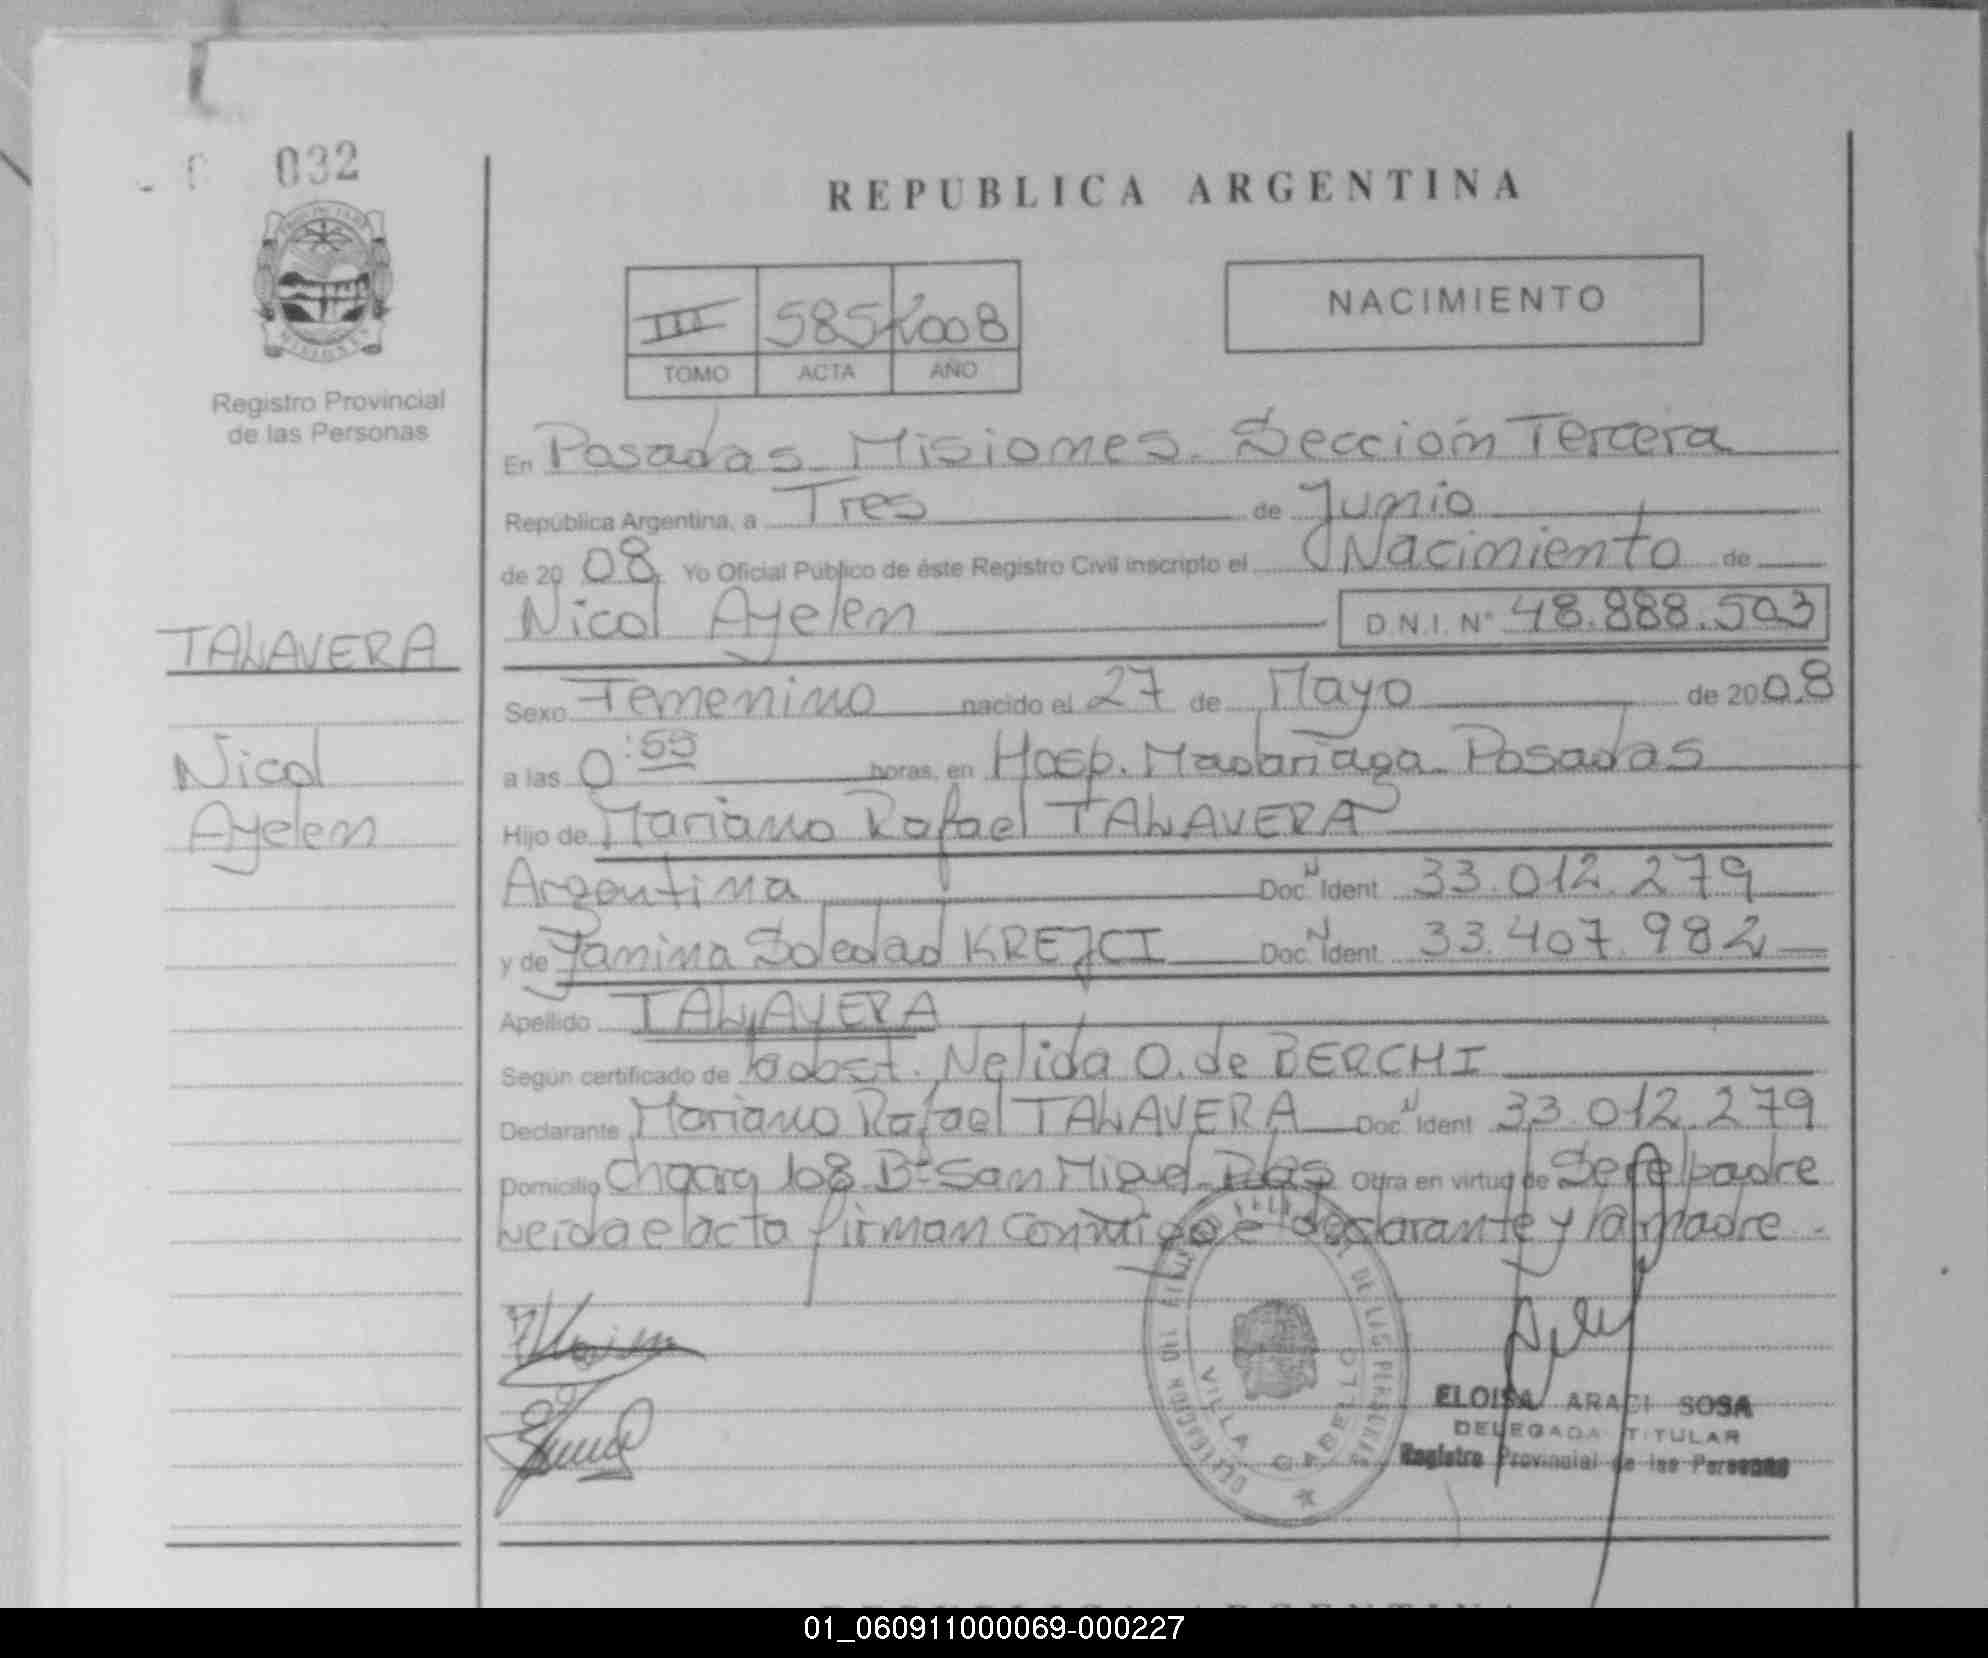 032
REPUBLICA ARGENTINA
NACIMIENTO
III 585 2008
TOMO ACTA AÑO
MISIONES
Registro Provincial
de las Personas
En Posadas Misiones. Sección Tercera
República Argentina, a Tres de Junio
de 2008 Yo Oficial Público de éste Registro Civil inscripto el Nacimiento de
Nicol Ayelen D.N.I. N° 48.888.503
TALAVERA
Nicol
Ayelen
Sexo Femenino nacido el 27 de Mayo de 2008
a las 0:55 horas, en Hosp. Madariaga Posadas
Hijo de Mariano Rafael TALAVERA
Argentina Doc. N Ident 33.012.279
y de Yanina Soledad KREJCI Doc. N Ident 33.407.982
Apellido TALAVERA
Según certificado de la obst. Nelida O. de BERCHI
Declarante Mariano Rafael TALAVERA Doc. N Ident 33.012.279
Domicilio Chacra 108 B° San Miguel Pdas Obra en virtud de Ser el padre
Leida el acta firman conmigo el declarante y la madre.
DELEGACION DEL REGISTRO PROVINCIAL DE LAS PERSONAS
VILLA CABELLO
ELOISA ARACI SOSA
DELEGADA TITULAR
Registro Provincial de las Personas
REPUBLICA ARGENTINA
01_060911000069-000227